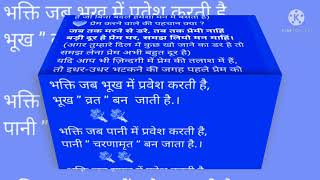 भक्ति जब भूख में प्रवेश करती है,
भूख "
है जो बिना बदले हमेशा मन में बसता है)
प्रेम करने वाले की पहचान क्या ?
जब तक मरने से डरे, तब तक प्रेमी नाहिं
बड़ी दूर है प्रेम घर, समझ लियो मन माहिं।
(अगर तुम्हारे दिल में कुछ खो जाने का डर है तो
समझ लेना प्रेम अभी बहुत दूर है)
यदि आप भी ज़िन्दगी में प्रेम की तलाश में हैं,
तो इधर-उधर भटकने की जगह पहले प्रेम को
भक्ति जब भूख में प्रवेश करती है,
भूख " व्रत " बन जाती है.।
भक्ति जब पानी में प्रवेश करती है,
पानी " चरणामृत " बन जाता है.।
भक्ति
पानी "
है,